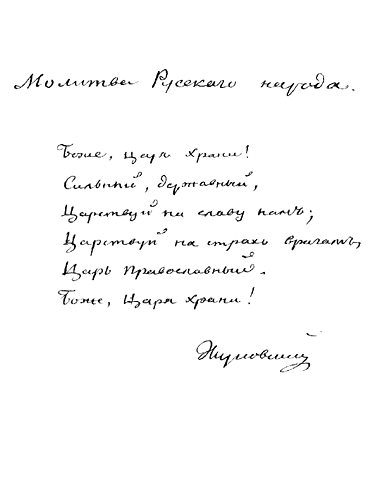 Молитва Русскаго народа.
Боже, Царя храни!
Сильный, державный,
Царствуй на славу намъ;
Царствуй на страхъ врагамъ,
Царь православный.
Боже, Царя храни!
Жуковский